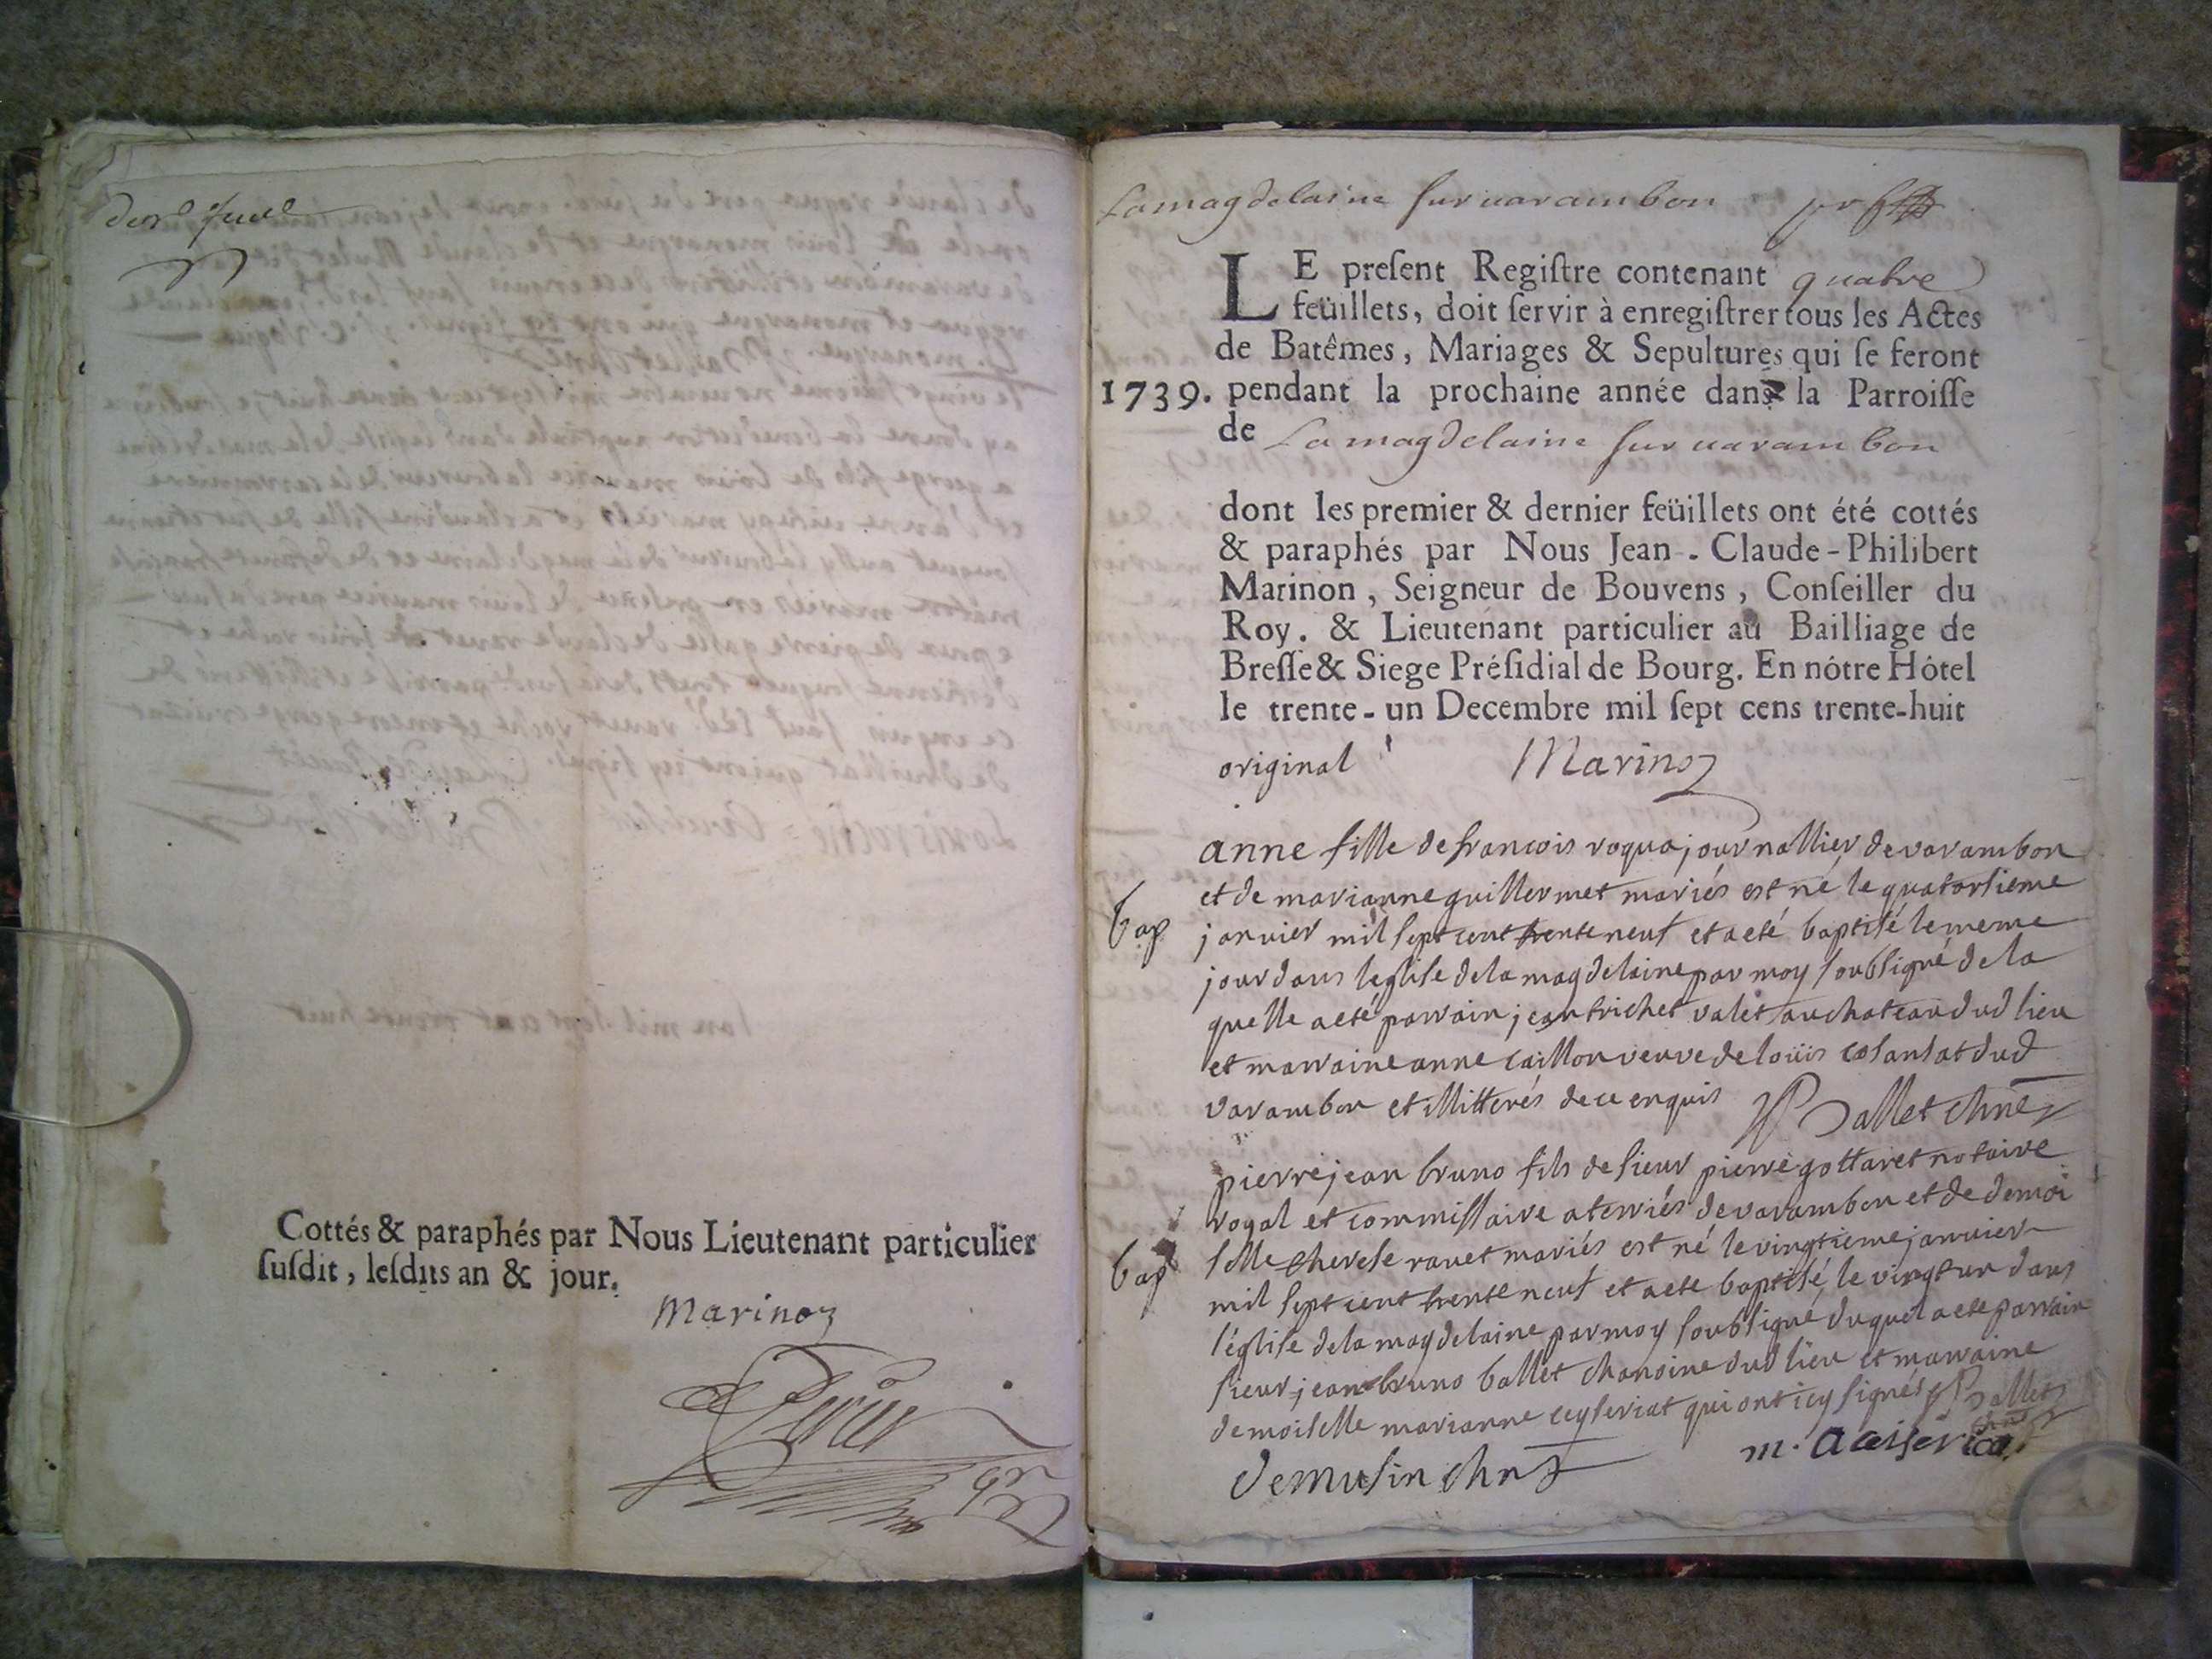 Cottés & paraphés par Nous Lieutenant particulier
ſuſdit, leſdits an & jour.
Marinon
La magdelaine ſur varambon
LE preſent Regiſtre contenant quatre
feüillets, doit ſervir à enregiſtrer tous les Actes
de Batêmes, Mariages & Sepultures qui ſe feront
1739. pendant la prochaine année dans la Parroiſſe
de La magdelaine ſur varambon
dont les premier & dernier feüillets ont été cottés
& paraphés par Nous Jean-Claude-Philibert
Marinon, Seigneur de Bouvens, Conſeiller du
Roy. & Lieutenant particulier au Bailliage de
Breſſe & Siege Préſidial de Bourg. En nôtre Hôtel
le trente-un Decembre mil ſept cens trente-huit
original Marinon
anne fille de francois roqua journallier de varambon
et de marianne guillermet mariés est né le quatorsieme
bap janvier mil sept cent trente neuf et a eté baptisé le meme
jour dans leglise de la magdelaine par moy soubsigné de la
quelle a eté parrain jean trichet valet au chateau dud lieu
et marraine anne caillon veuve de loüis dud
varambon et illitterés de ce enquis Ballet chne
pierre jean bruno fils de sieur pierre gottaret notaire
royal et commissaire a terriés de varambon et de demoi
bap selle therese ravet mariés est né le vingtieme janvier
mil sept cent trente neuf et a ete baptisé le vingt un dans
l'église de la magdelaine par moy soubsigné duquel a ete parrain
sieur jean bruno ballet chanoine dud lieu et marraine
demoiselle marianne ceyseriat qui ont icy signés Ballet
chne
demusin chne m. a ceiseriat